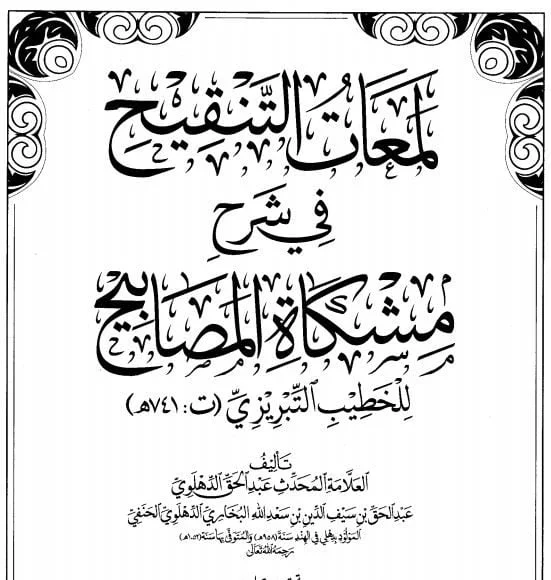 لَمَعَاتُ التَّنْقِيحِ
فِي شَرْحِ
مِشْكَاةِ المَصَابِيحِ
لِلْخَطِيبِ التِّبْرِيزِيِّ (ت: ٧٤١هـ)
تَأليفُ
العَلَّامَةِ المُحَدِّثِ عَبْدِ الحَقِّ الدِّهْلَوِيِّ
عَبْدِ الحَقِّ بْنِ سَيْفِ الدِّينِ بْنِ سَعْدِ اللهِ البُخَارِيِّ الدِّهْلَوِيِّ الحَنَفِيِّ
المَوْلُودِ بِدِهْلِي فِي الهِنْدِ سَنَةَ (٩٥٨هـ) وَالمُتَوَفَّى بِهَا سَنَةَ (١٠٥٢هـ)
رَحِمَهُ اللهُ تَعَالَى